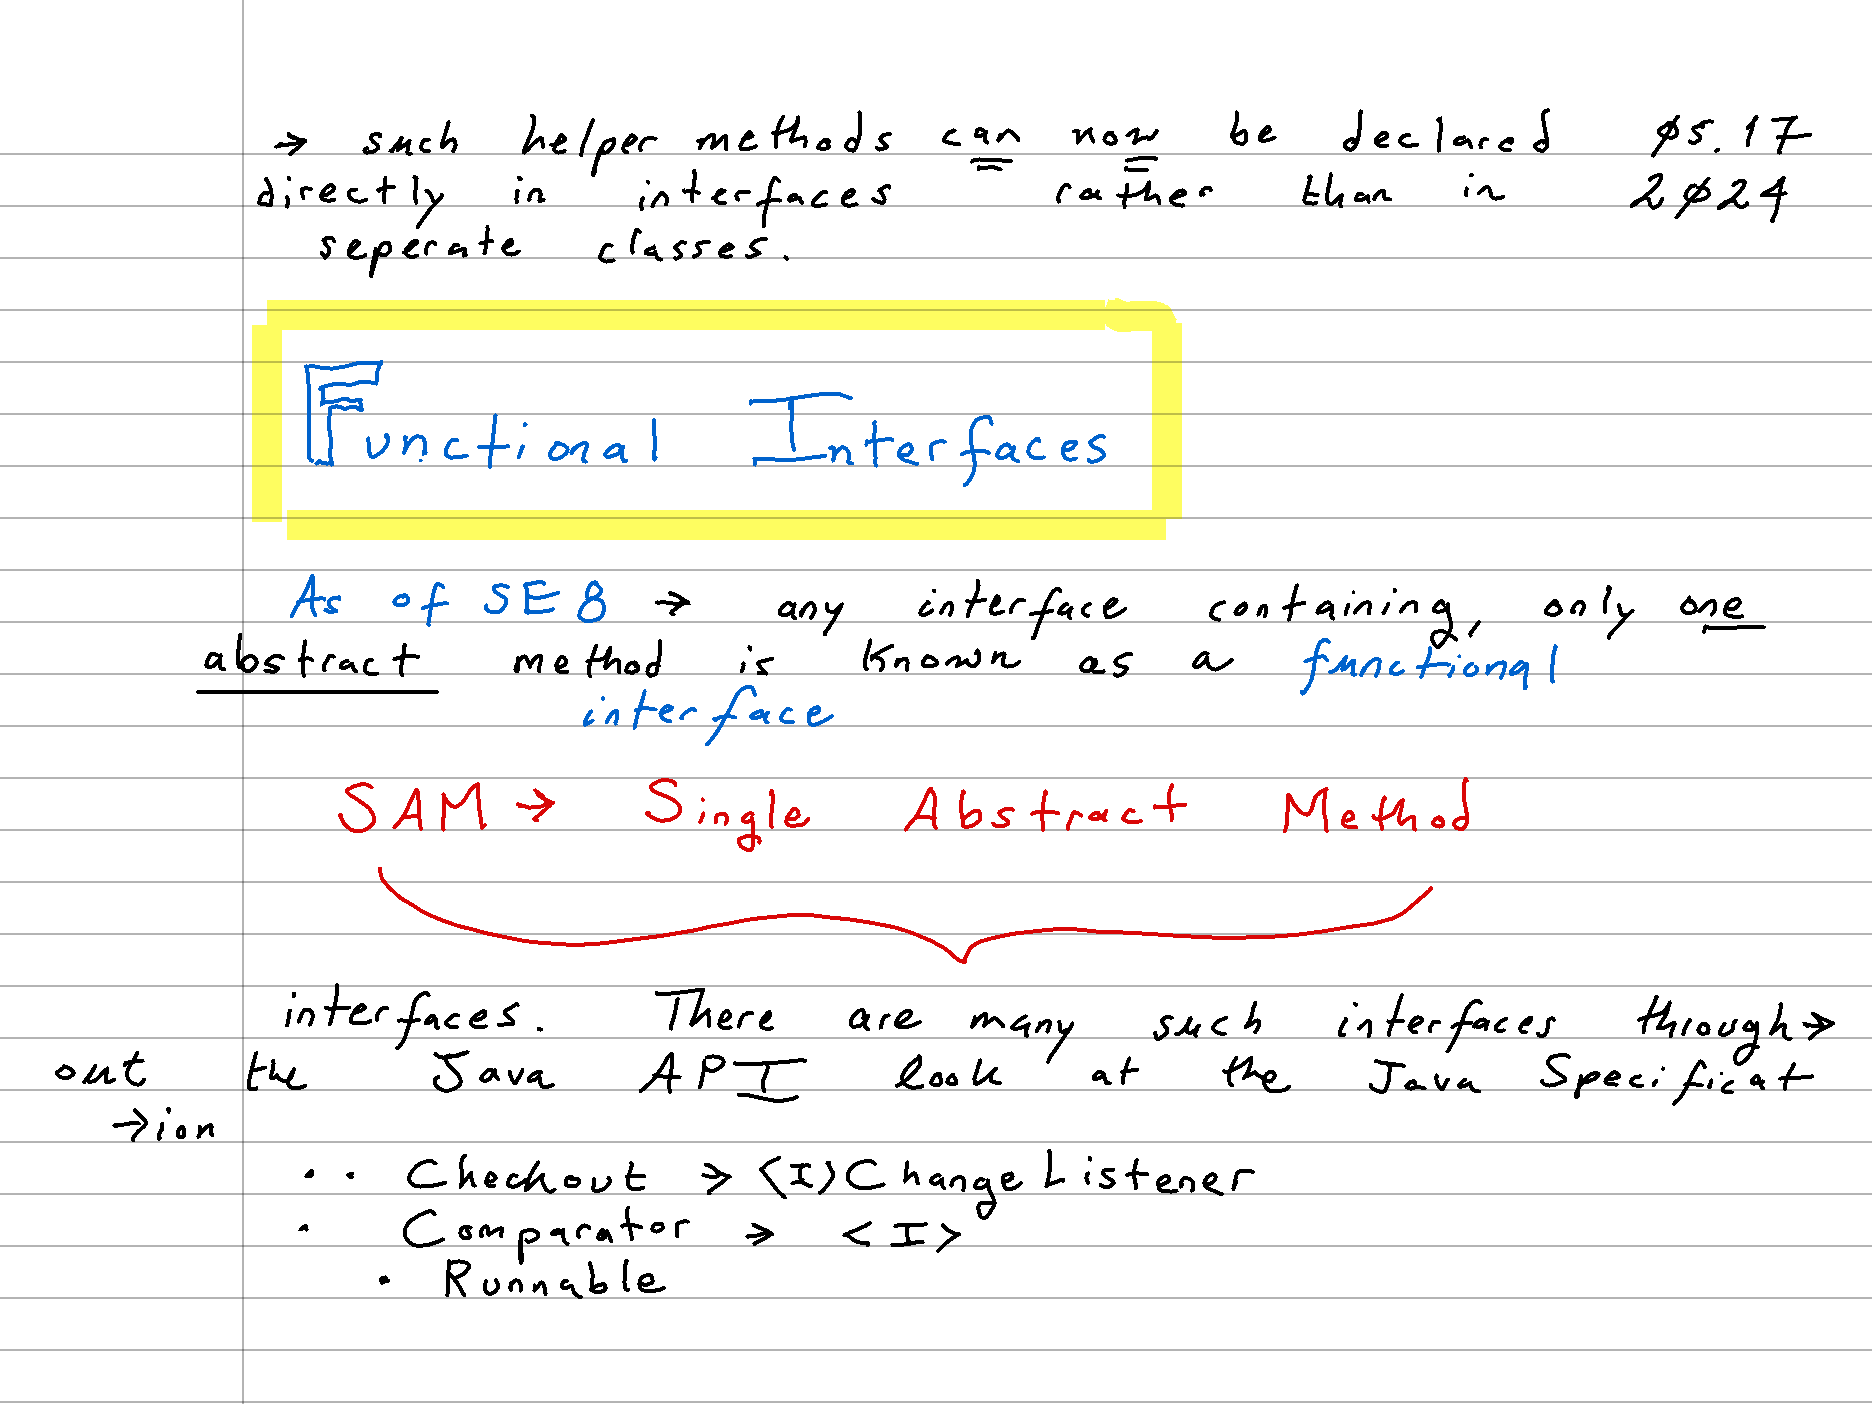 → such helper methods can now be declared ø5.17
directly in interfaces rather than in 2ø24
seperate classes.
Functional Interfaces
As of SE8 → any interface containing, only one
abstract method is known as a functional
interface
SAM → Single Abstract Method
interfaces. There are many such interfaces through→
out the Java API look at the Java Specificat
→ion
·· Checkout → <I>ChangeListener
· Comparator → <I>
· Runnable